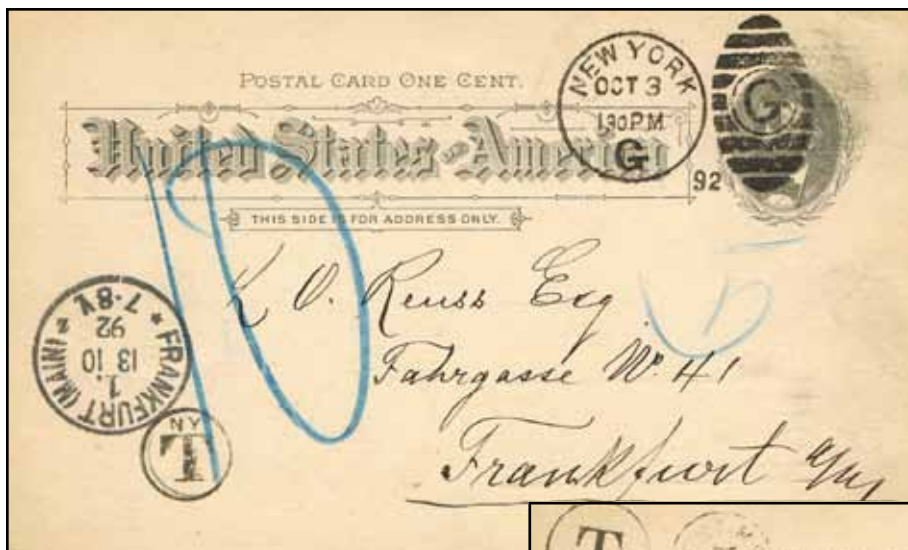 POSTAL CARD ONE CENT.
United States of America
THIS SIDE IS FOR ADDRESS ONLY.
NEW YORK
OCT 3
130PM
G
92
G
10
5
K O. Reuss Esq
Fahrgasse No. 41
Frankfurt a/M
* FRANKFURT (MAIN) *
1.
13 10
92
7-8V.
NY
T
T